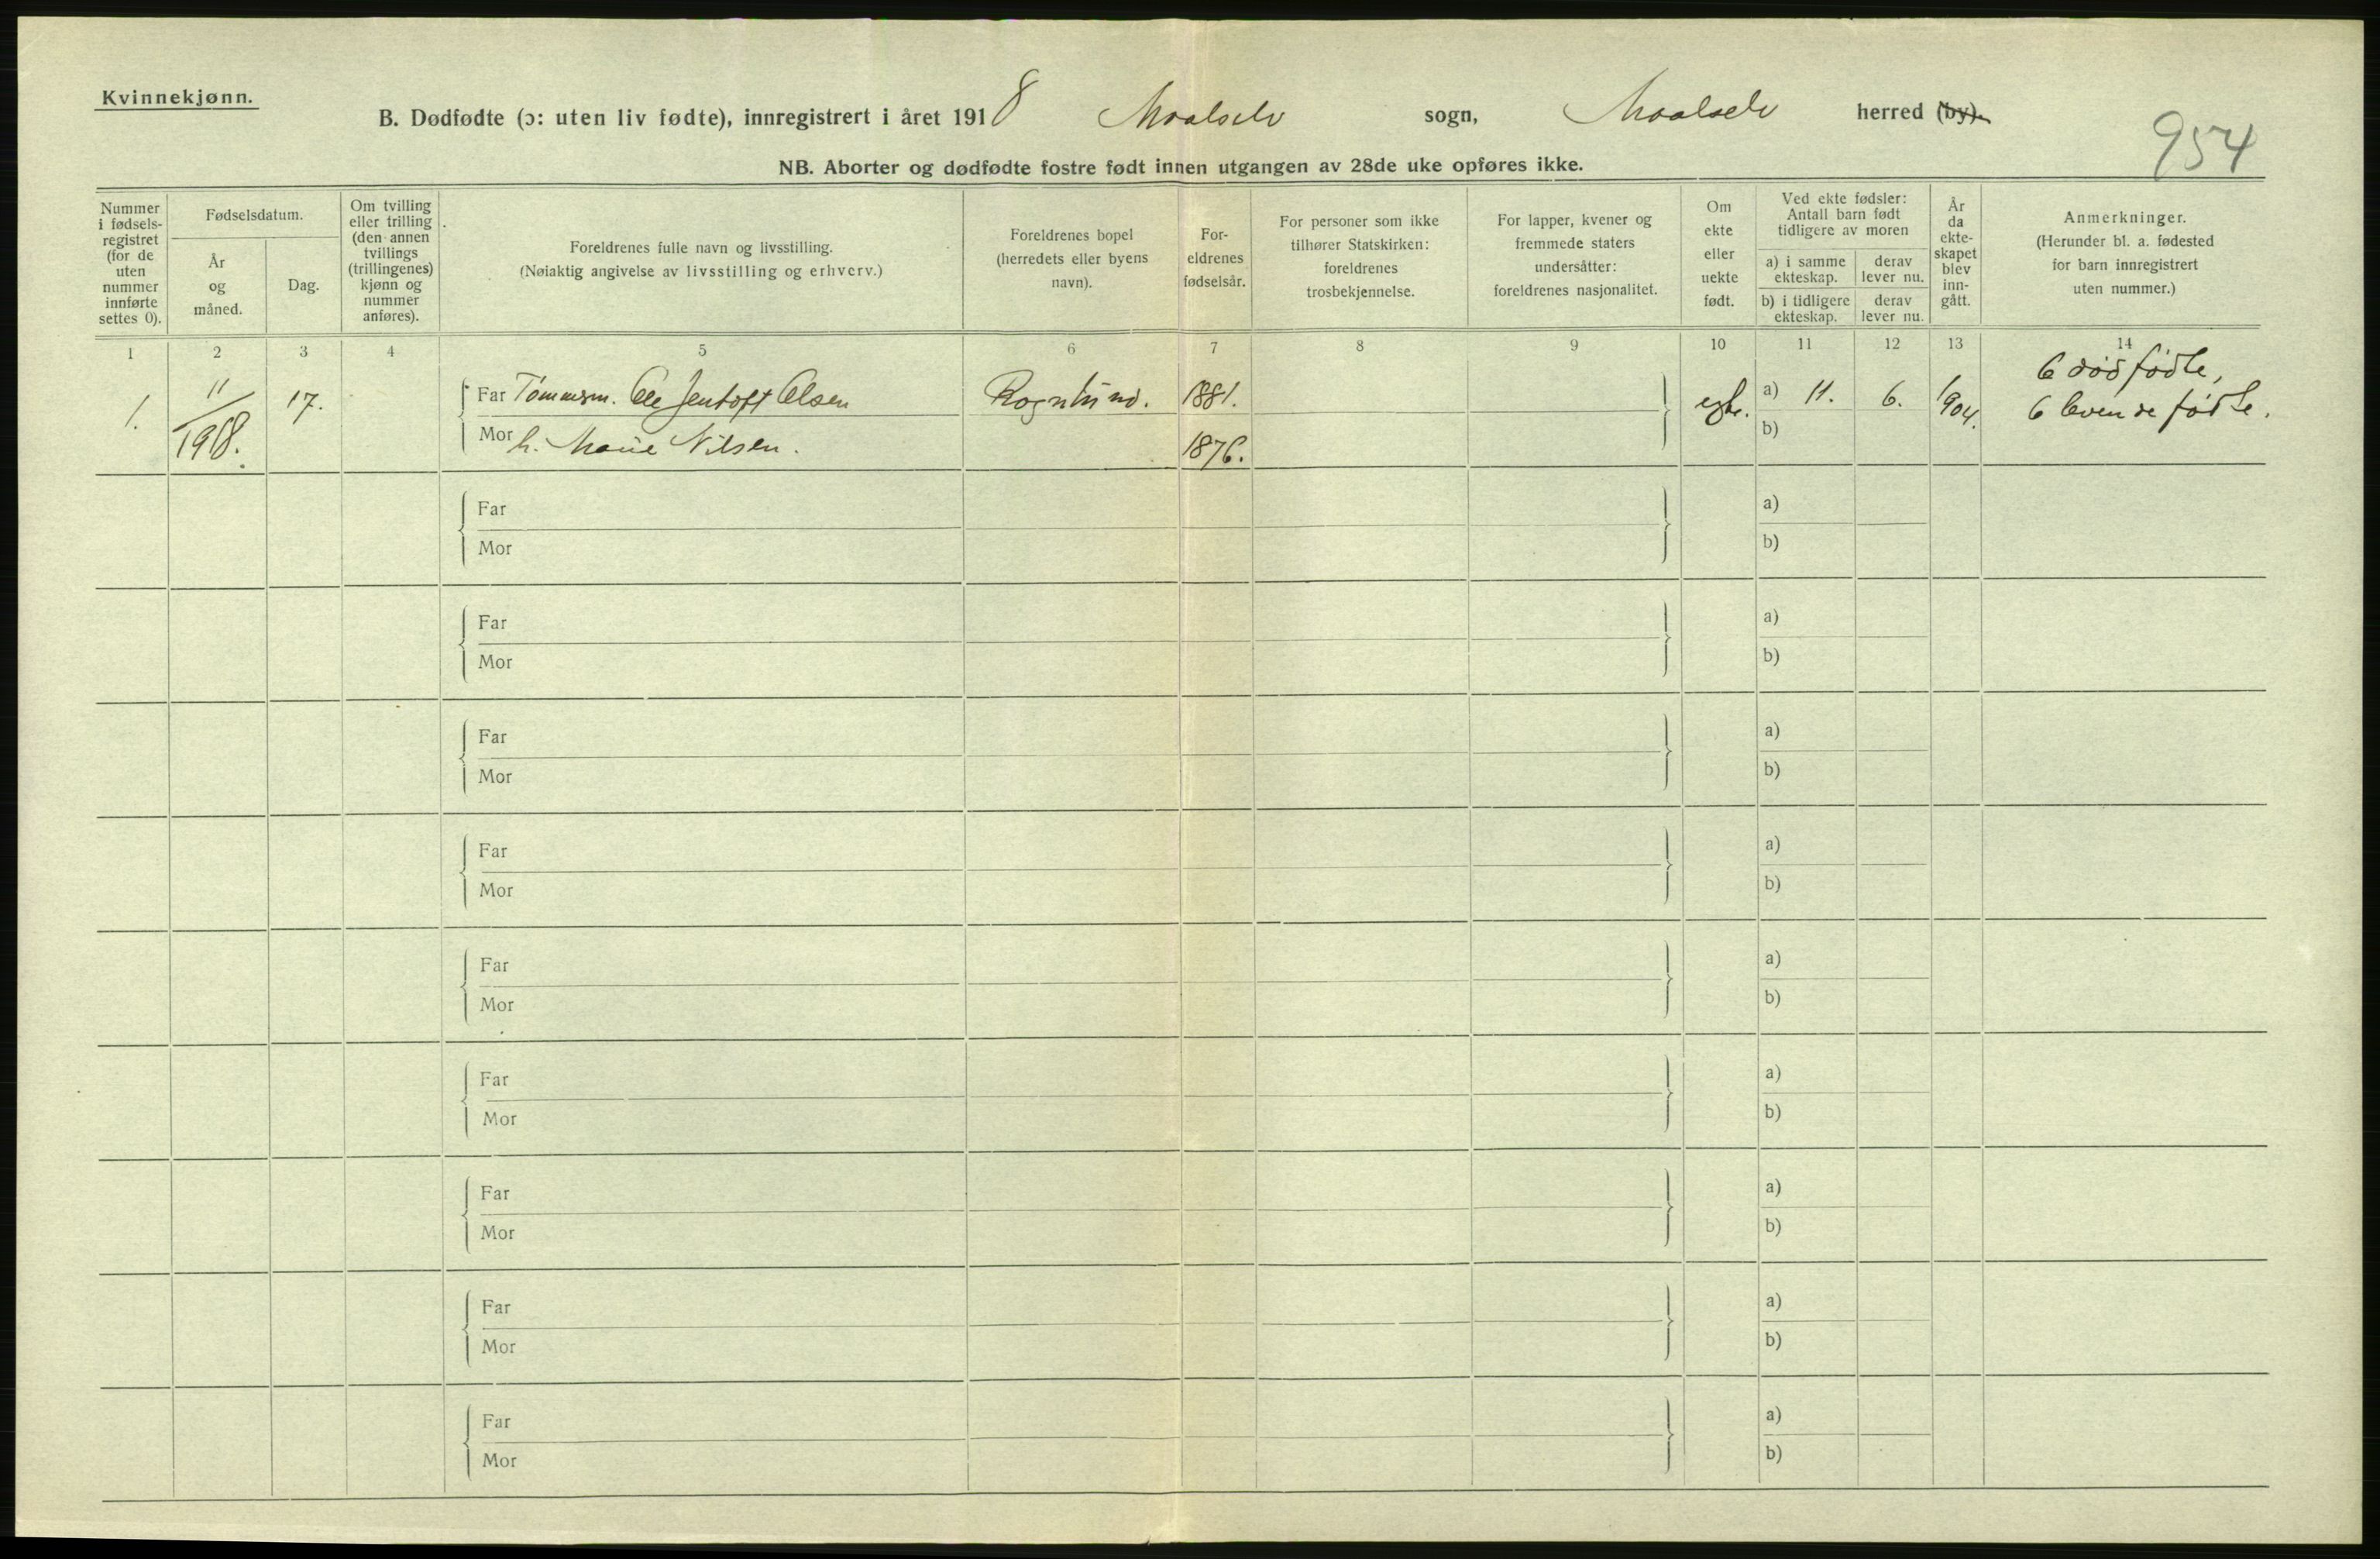 Kvinnekjønn.
B. Dødfødte (ɔ: uten liv fødte), innregistrert i året 1918 Maalselv sogn, Maalselv herred (by).
954
NB. Aborter og dødfødte fostre født innen utgangen av 28de uke opføres ikke.
Nummer i fødsels-registret (for de uten nummer innførte settes 0).
Fødselsdatum.
År og måned.
Dag.
Om tvilling eller trilling (den annen tvillings (trillingenes) kjønn og nummer anføres).
Foreldrenes fulle navn og livsstilling.
(Nøiaktig angivelse av livsstilling og erhverv.)
Foreldrenes bopel (herredets eller byens navn).
For-eldrenes fødselsår.
For personer som ikke tilhører Statskirken: foreldrenes trosbekjennelse.
For lapper, kvener og fremmede staters undersåtter: foreldrenes nasjonalitet.
Om ekte eller uekte født.
Ved ekte fødsler: Antall barn født tidligere av moren
a) i samme ekteskap.
derav lever nu.
b) i tidligere ekteskap.
derav lever nu.
År da ekte-skapet blev inn-gått.
Anmerkninger.
(Herunder bl. a. fødested for barn innregistrert uten nummer.)
1 2 3 4 5 6 7 8 9 10 11 12 13 14
1. 11/1918. 17. Far Tømmerm. Ole Jentoft Olsen 1881. egte. a) 11. 6. 1904. 6 dødfødte,
6 levende fødte.
Mor h. Marie Nilsen. 1876. b)
Far a)
Mor b)
Far a)
Mor b)
Far a)
Mor b)
Far a)
Mor b)
Far a)
Mor b)
Far a)
Mor b)
Far a)
Mor b)
Far a)
Mor b)
Far a)
Mor b)